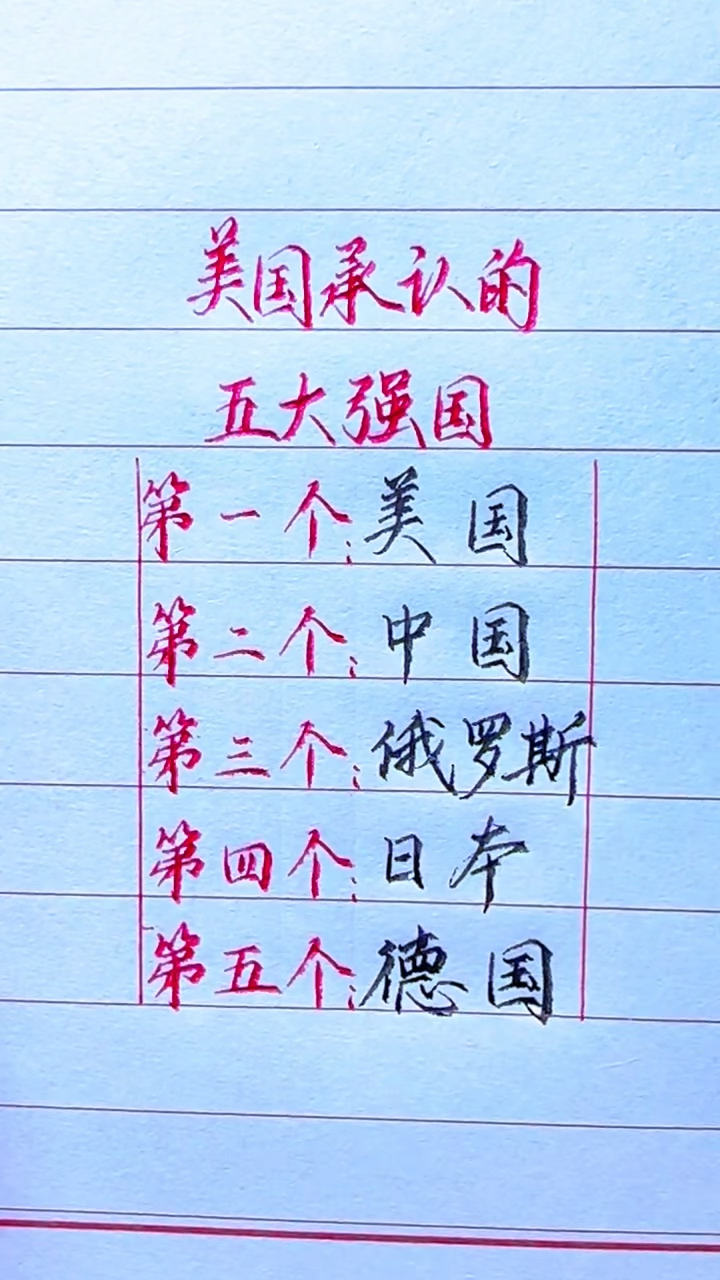 美国承认的
五大强国
第一个:美国
第二个:中国
第三个:俄罗斯
第四个:日本
第五个:德国